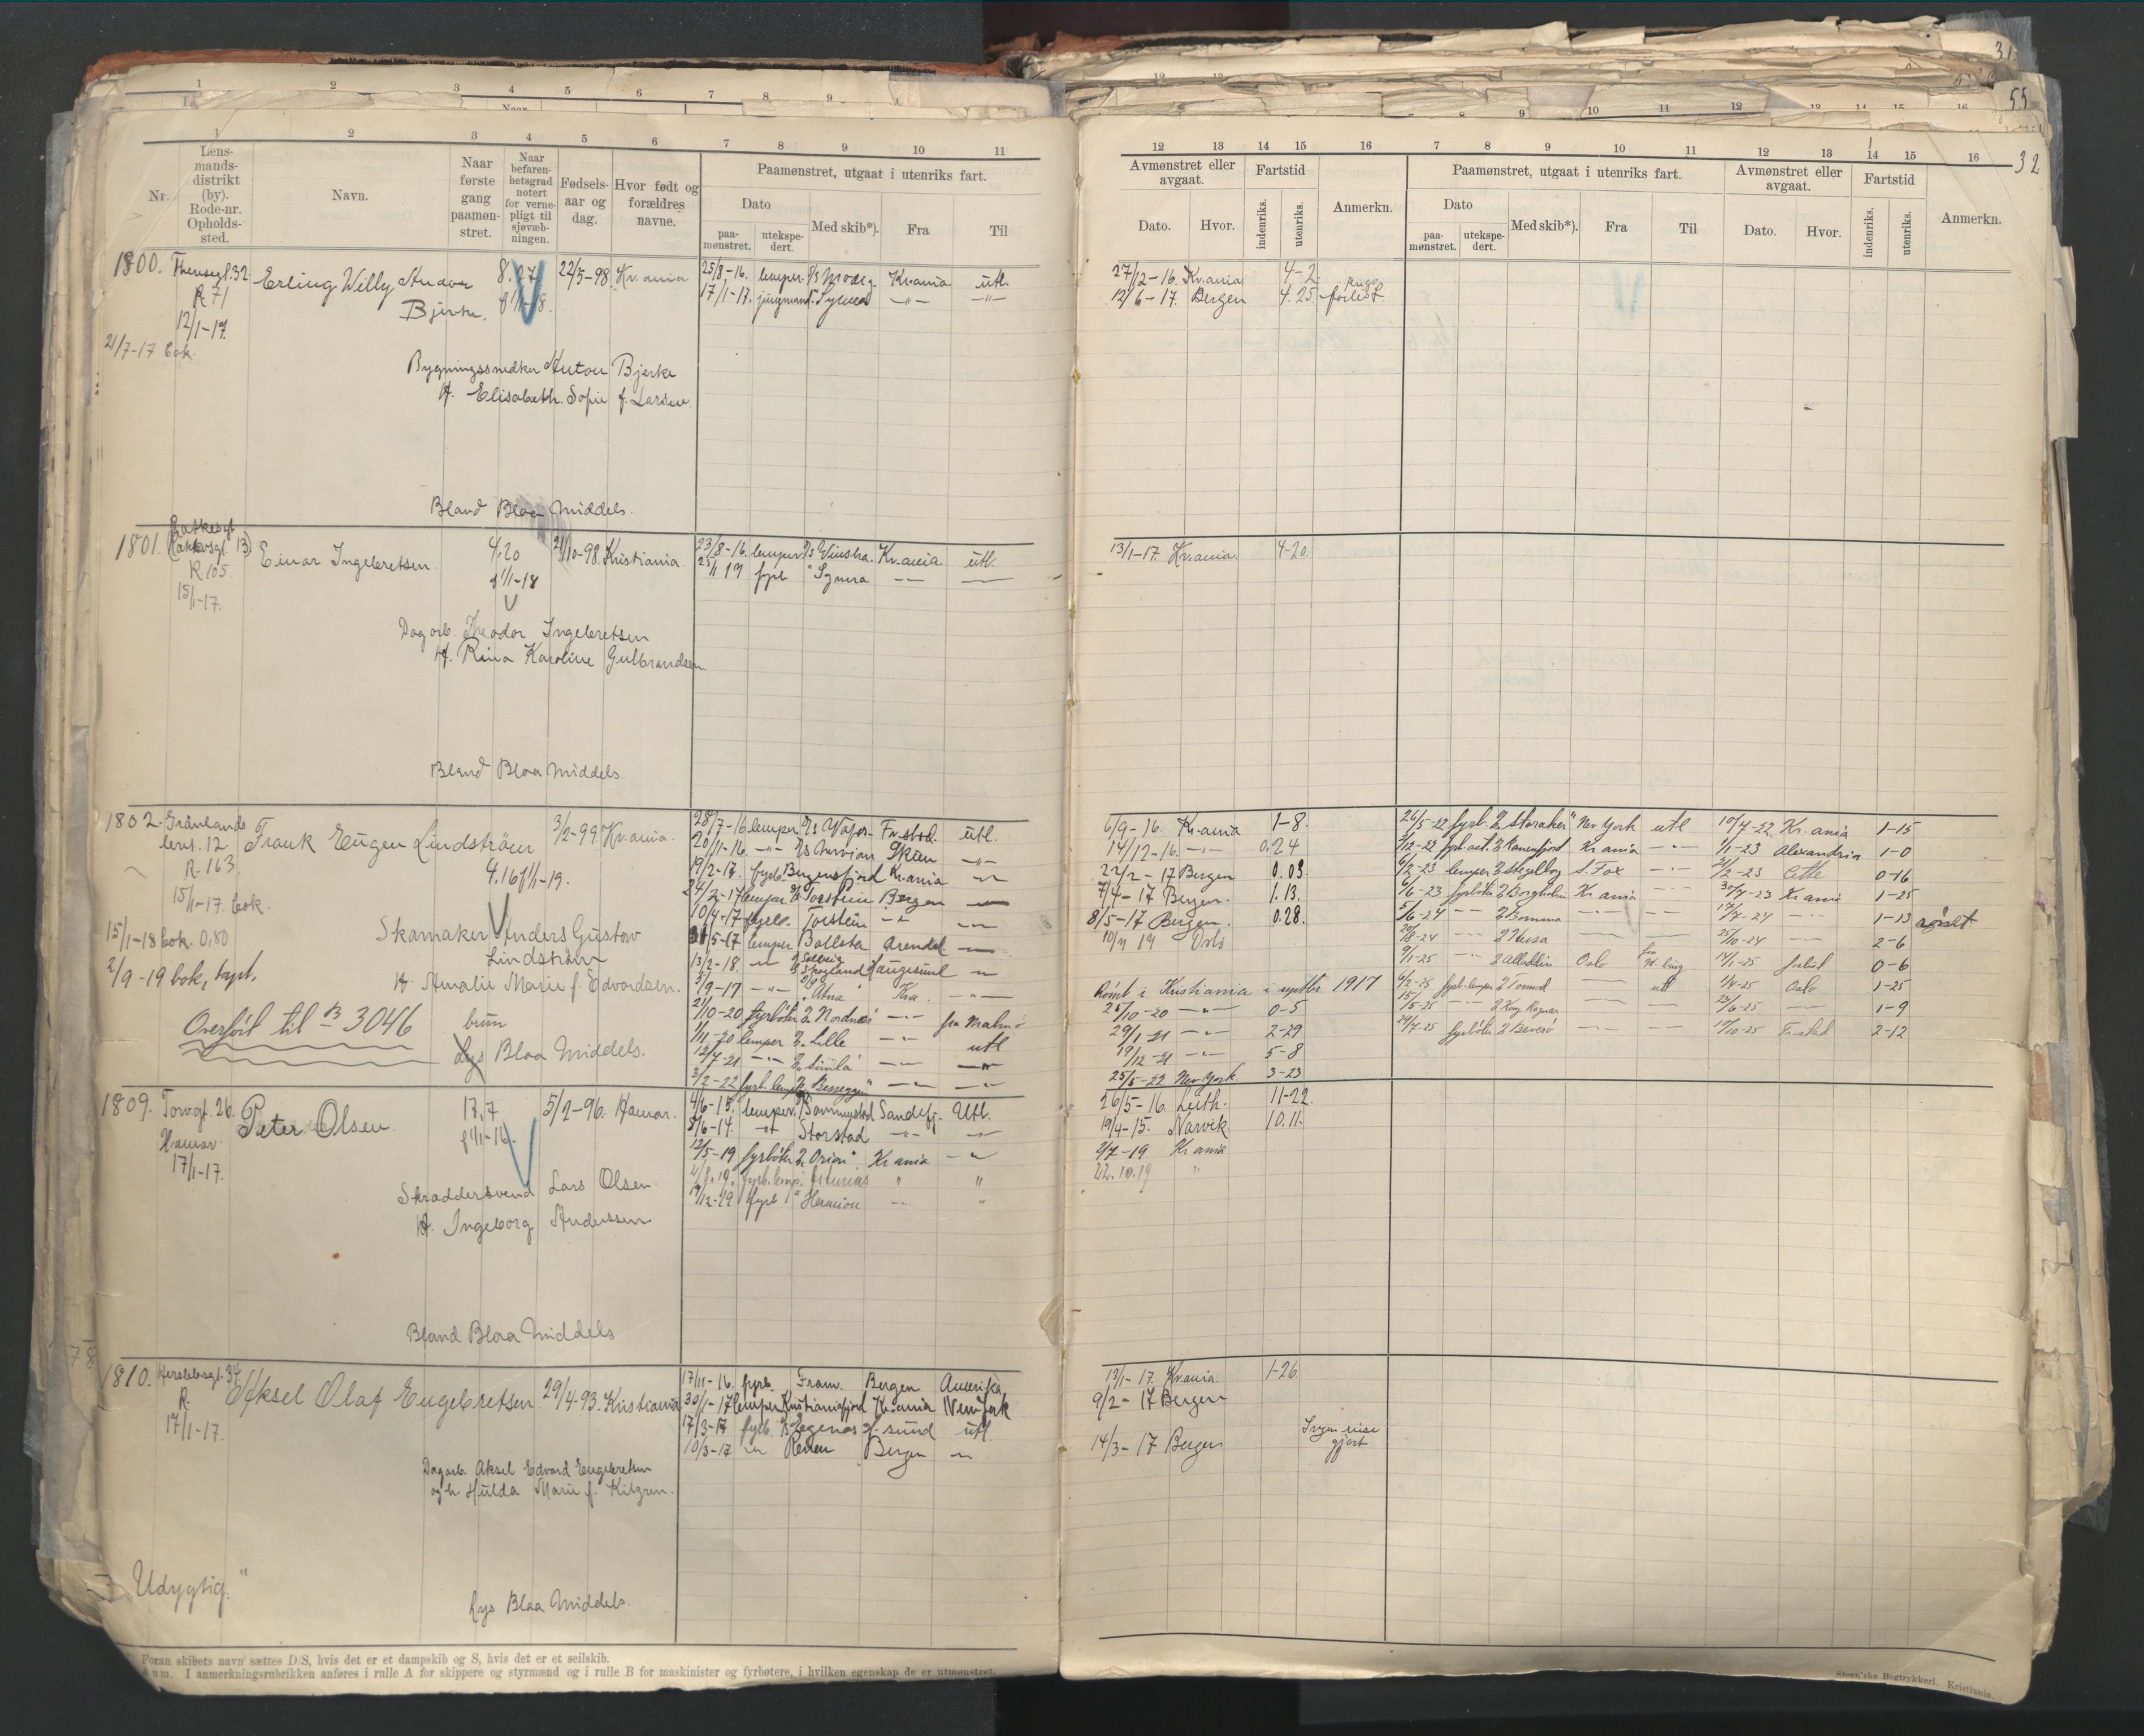 31
55
32
1 2 3 4 5 6 7 8 9 10 11
Nr.
Lens-
mands-
distrikt
(by).
Rode-nr.
Opholds-
sted.
Navn.
Naar
første
gang
paamøn-
stret.
Naar
befaren-
hetsgrad
notert
for verne-
pligt til
sjøvæb-
ningen.
Fødsels-
aar og
dag.
Hvor født og
forældres
navne.
Paamønstret, utgaat i utenriks fart.
Dato
paa-
mønstret.
utekspe-
dert.
Med skib*).
Fra
Til
1800. Theresegt. 32. Erling Willy Andor 8.27 22/5-98. Kr.ania 25/8-16. lemper. Kr.ania utl.
R 71 Bjerke. f 1/1-18. 17/1-17. jungmand. Symra -"- -"-
12/1-17.
21/7-17 bok.
Bygningssnedker Anton Bjerke
H. Elisabeth Sofie f. Larsen
Bland Blaa Middels.
1801. Einar Ingebretsen. 4.20 21/10-98. Kristiania 23/8-16. lemper D/S Vinstra. Kr.ania utl.
R 105. f 1/1-18 25/1 19 fyrb " Symra
15/1-17.
Dagarb. Theodor Ingebretsen
H. Rina Karoline Gulbrandsen
Bland Blaa Middels.
1802. Grønlands Frank Eugen Lindström 3/2-99. Kr.ania. 28/7-16 lemper. D/S Fr.stad. utl.
lere. 12 20/11-16. -"- D/S Skien -"-
R. 163 4.16 f 1/1-19. 19/2-17. fyrb. Bergensfjord Kr.ania
15/1-17. bok. 24/3-17 lemper Torstein Bergen
10/4-17 fyrb. Torstein
15/1-18 bok. 0,80 Skomaker Anders Gustav 5-17 lemper Ballsta Arendal
Lindström 13/2-18. Skogland Haugesund
2/9-19 bok, tapt. H. Amalie Marie f. Edvardsen. 9-17 -"- "Atna" Kra. -"-
Overført til B 3046 brun 21/10-20 fyrbøter Nordnes -"- fra Malmø
Lys Blaa Middels. 1/11-20 lemper Lille -"- utl
12/7-21 -"- Simla
2/2-22 fyrb. lemper Besseggen"
1809. Torvgt. 26. Peter Olsen. 17.7 5/2-96. Hamar. 4/6-15. lemper Sandefj. Utl.
Hamar f 1/1-16. 8/6-14. Storstad -"-
17/1-17. 12/5-19 fyrbøter Orion". Kr ania -"-
4/8.19. fyrb. lemp. Asturias " "
Skræddersvend Lars Olsen. 19/12-19 fyrb " Hermion "
H. Ingeborg Anderssen
Bland Blaa Middels
1810. Herslebsgt. 34. Aksel Olaf Engebretsen. 29/4-93. Kristiania 17/11-16. fyrb. Fram. Bergen Amerika.
R. 30/1-17 lemper Kristianiafjord Kr.ania New York
17/1-17. 17/3-17 fyrb. sund utl.
10/3-17 Bergen
Dagarb. Aksel Edvard Engebretsen
og h. Hulda Marie f.
"Udygtig."
Lys Blaa Middels.
Foran skibets navn sættes D/S, hvis det er et dampskib og S, hvis det er et seilskib.
Anm. I anmerkningsrubrikken anføres i rulle A for skippere og styrmænd og i rulle B for maskinister og fyrbøtere, i hvilken egenskap de er utmønstret.
12 13 14 15 16 7 8 9 10 11 12 13 14 15 16
Avmønstret eller
avgaat.
Fartstid
Dato.
Hvor.
indenriks.
utenriks.
Anmerkn.
Paamønstret, utgaat i utenriks fart.
Dato
paa-
mønstret.
utekspe-
dert.
Med skib*).
Fra
Til
Avmønstret eller
avgaat.
Fartstid
Dato.
Hvor.
indenriks.
utenriks.
Anmerkn.
27/12-16. Kr.ania. 4-2.
12/6-17. Bergen 4.25 forlist.
13/1-17. Kr.ania. 4-20.
6/9-16. Kr.ania 1-8. 26/5-22 fyrb. Storaker" New York utl 10/7-22 Kr.ania 1-15
14/12-16. -"- 0.24 2/12-22 Ranenfjord Kr ania -"- 1/1-23 Alexandria 1-0
22/2-17 Bergen 0.03. 6/2-23 lemper 21/2-23 Cette 0-16
7/4-17 Bergen. 1.13. 6/6-23 fyrbøter Borgholm Kr ania 30/7-23 Kr ania 1-25
8/5-17 Bergen. 0.28. 5/6-24 Bomma 17/7-24 1-13
10/4 19 Oslo 20/8-24 25/10-24 2-6
9/1-25 Alladdin Oslo 14/1-25 forlist 0-6
Rømt i Kristiania i septbr 1917 6/2-25 fyrb. lemper utl 1/4-25 Oslo 1-25
26/10-20 -"- 0-5 15/5-25 Kong Ragnar 23/6-25 1-9
29/1-21 -"- 2-29 29/7-25 fyrbøter 10/10-25 Fr-stad 2-12
19/12-21 -"- 5-8
25/5-22 New York. 3-23
26/5-16. Leith. 11-22.
19/4-15. Narvik 10.11.
2/7-19 Kr ania
22.10.19 "
13/1-17. Kr.ania. 1-26.
9/2-17 Bergen
14/3-17 Bergen Ingen reise
gjort
Steen'ske Bogtrykkeri. Kristiania.